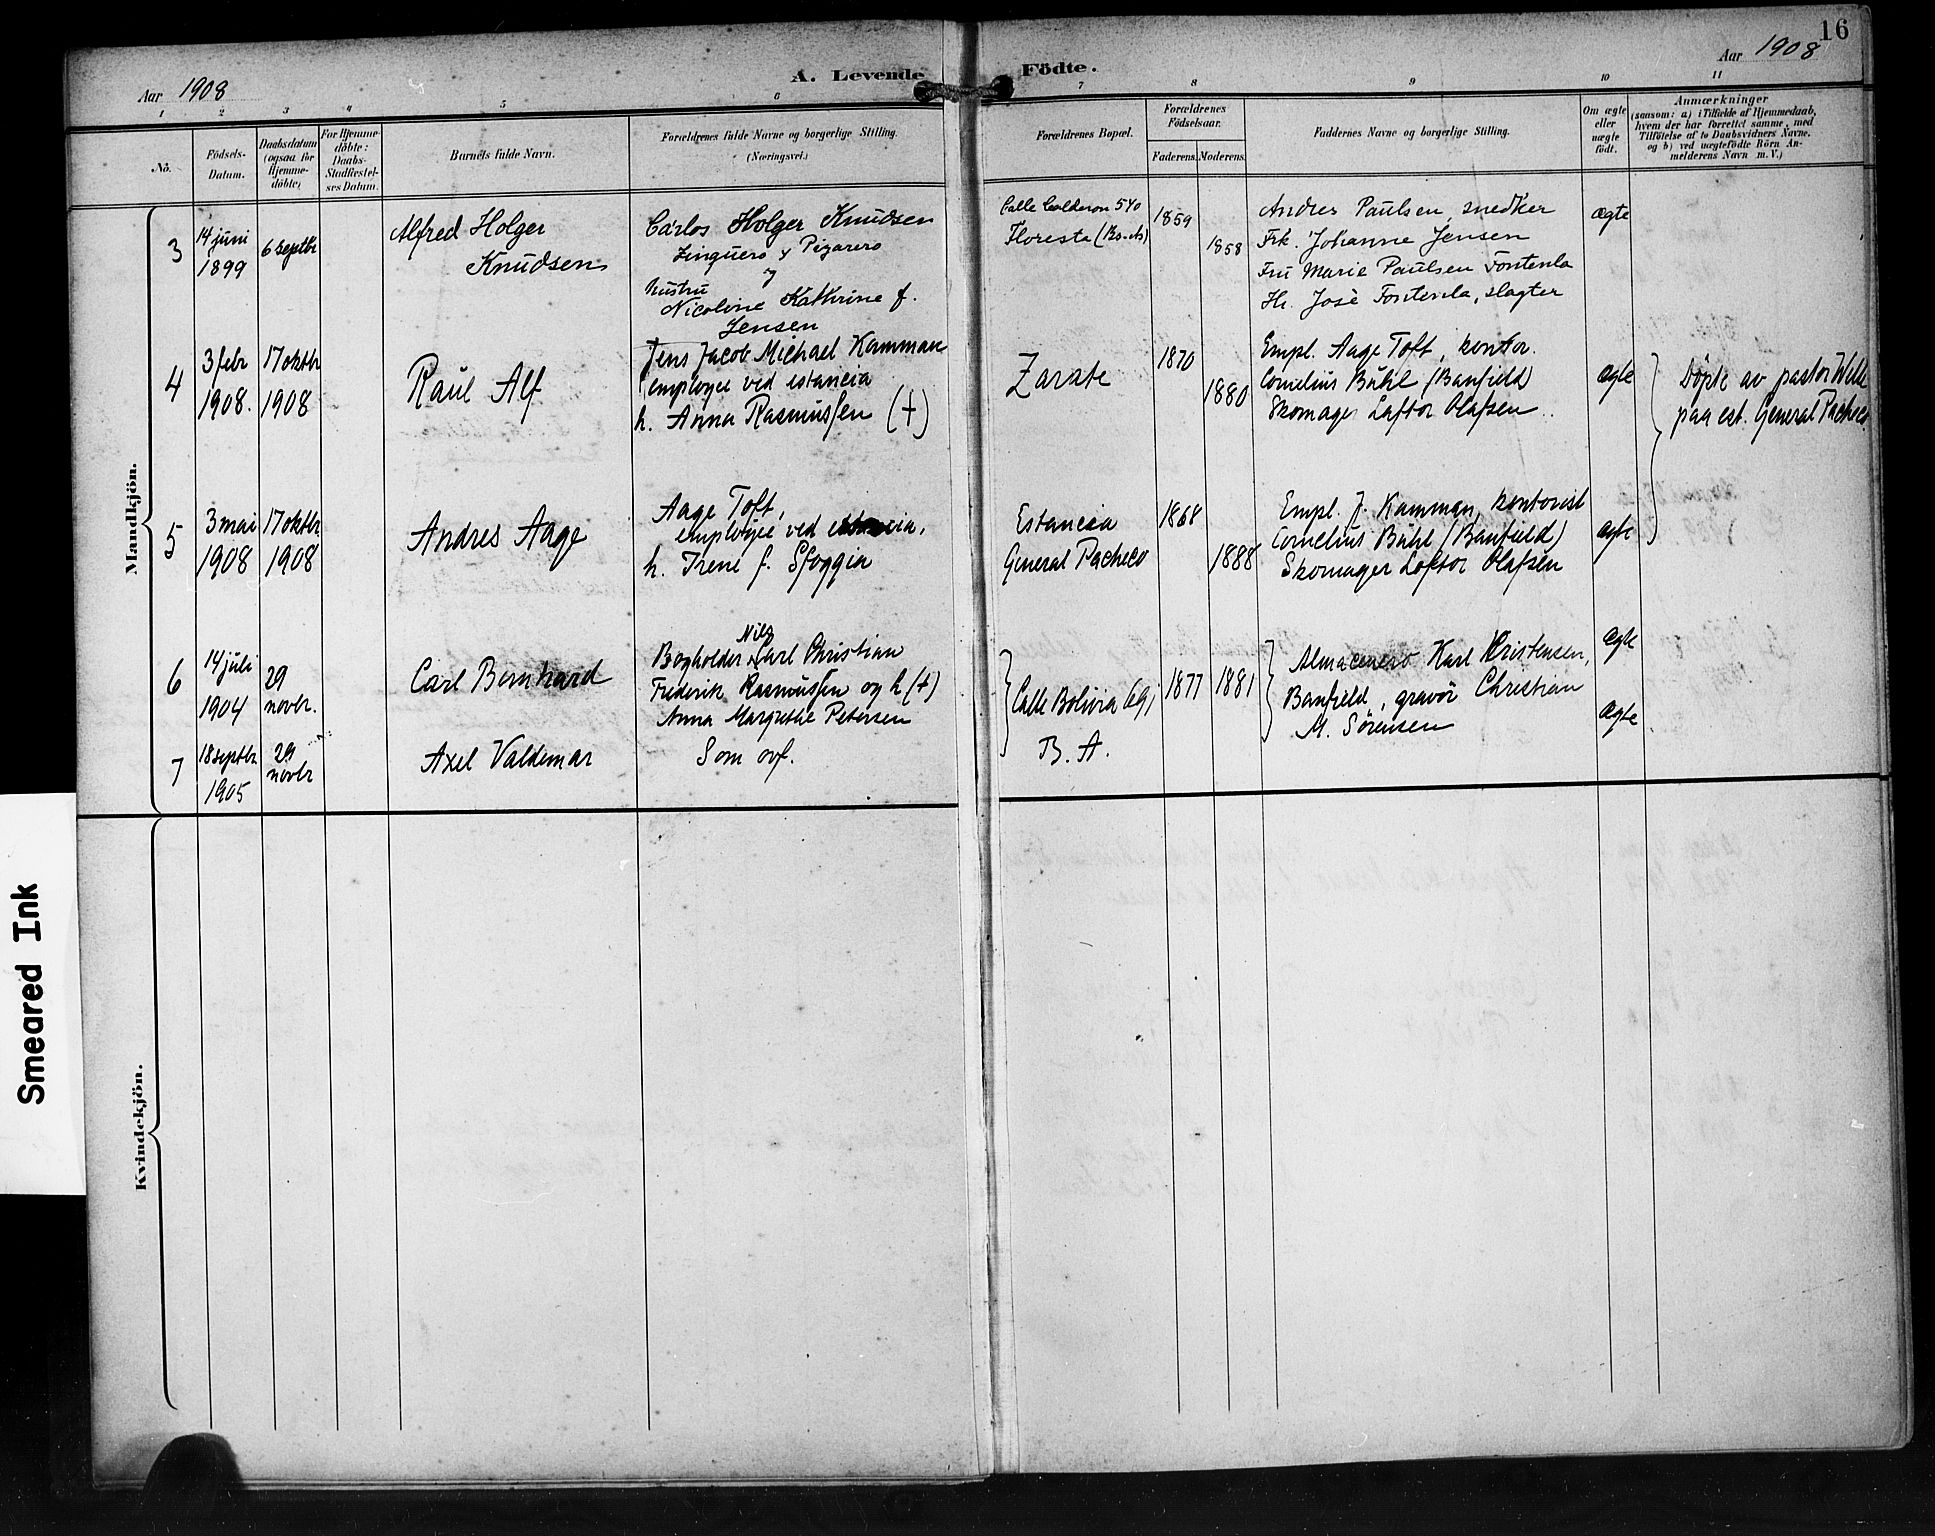 16
Aar 1908
A. Levende Födte.
Aar 1908
1 2 3 4 5 6 7 8 9 10 11
No.
Födsels-
Datum.
Daabsdatum
(ogsaa for
Hjemme-
döbte)
For Hjemme-
döbte:
Daabs-
Stadfæstel-
ses Datum.
Barnets fulde Navn.
Forældrenes fulde Navne og borgerlige Stilling.
(Næringsvei.)
Forældrenes Bopæl.
Forældrenes
Födselsaar.
Faderens. Moderens.
Faddernes Navne og borgerlige Stilling.
Om ægte
eller
uægte
födt.
Anmærkninger
(saasom: a) i Tilfælde af Hjemmedaab,
hvem der har forrettet samme, med
Tilföielse af to Daabsvidners Navne.
og b) ved uægtefödte Börn An-
melderens Navn m. V.)
Mandkjön.
3
14 juni
1899
6 septbr
Alfred Holger
Knudsen
Carlos Holger Knudsen
Zinguero y Pizarero
og
hustru
Nicoline Kathrine f.
Jensen
Calle Calderon 540
Floresta (Bs-As)
1859
1858
Andres Paulsen, snedker
Frk. Johanne Jensen
Fru Marie Paulsen Fontenla
Hr. José Fontenla, slagter
ægte
4
3 febr
1908.
17 oktbr
1908
Raul Alf
Jens Jacob Michael Kamman
employee ved estancia
h. Anna Rasmussen (+)
Zarate
1870
1880
Empl. Aage Toft, kontor.
Cornelius Bühl (Banfield)
Skomager Loftor Olafsen
ægte
Döpte av pastor Wille
paa est. General Pacheco.
5
3 mai
1908
17 oktbr.
1908
Andres Aage
Aage Toft,
employee ved estancia,
h. Irene f. Sfoggia
Estancia
General Pacheco
1868
1888
Empl. J. Kamman, kontorist
Cornelius Bühl (Banfield)
Skomager Loftor Olafsen
ægte
6
14 juli
1904
29
novbr.
Carl Bernhard
Nils
Bogholder Carl Christian
Frederik Rasmussen og h (+)
Anna Margrethe Petersen
Calle Bolivia 691
B. A.
1877
1881
Almacenero Karl Kristensen,
Banfield, gravör Christian
M. Sørensen
ægte
7
18 septbr.
1905
29
novbr
Axel Valdemar
Som ovf.
ægte
Kvindekjön.
Smeared Ink